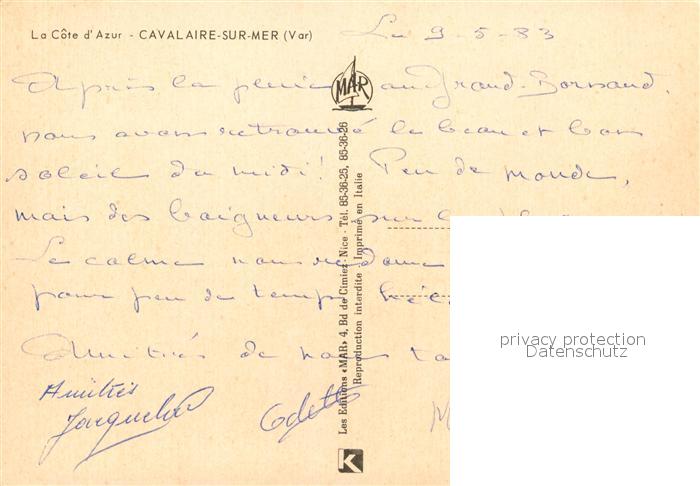 La Côte d'Azur - CAVALAIRE-SUR-MER (Var)
Le 9-5-83
Après la pluie au Grand-Bornand,
nous avons retrouvé le beau et bon
soleil du midi! Peu de monde,
mais des baigneurs sur la
Le calme nous redonne
pour peu de temps hélas
Amitiés de nous
Amitiés
Jacqueline
Odette
MAR
Les Editions «MAR» 4, Bd de Cimiez - Nice - Tél. 85-36-25, 85-36-26
Reproduction interdite - Imprimé en Italie
K
privacy protection
Datenschutz